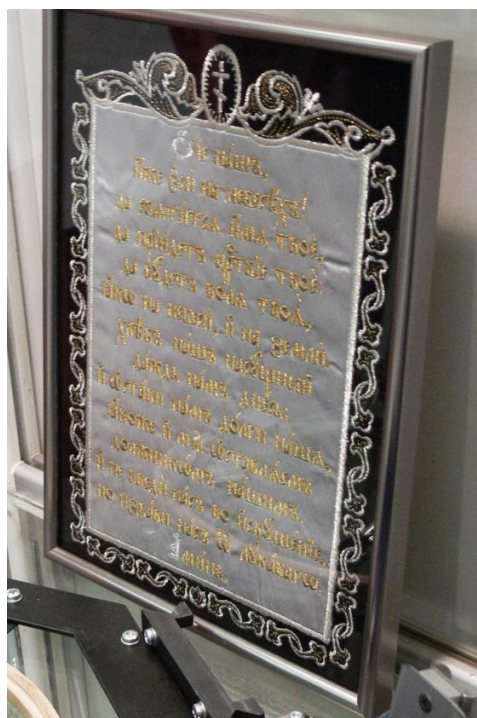 Ѻ҃че на́шъ,
И҆́же є҆сѝ на нб҃сѣ́хъ!
да свѧти́тсѧ и҆́мѧ твоѐ,
да прїи́детъ црⷭ҇твїе твоѐ:
да бꙋ́детъ во́лѧ твоѧ̀,
ꙗ҆́кѡ на нб҃сѝ, и҆ на землѝ.
хлѣ́бъ на́шъ насꙋ́щный
да́ждь на́мъ дне́сь:
и҆ ѡ҆ста́ви на́мъ до́лги на́шѧ,
ꙗ҆́коже и҆ мы̀ ѡ҆ставлѧ́емъ
должникѡ́мъ на́шымъ.
и҆ не введѝ на́съ во и҆скꙋше́нїе,
но и҆зба́ви на́съ ѿ лꙋка́вагѡ.
а҆ми́нь.